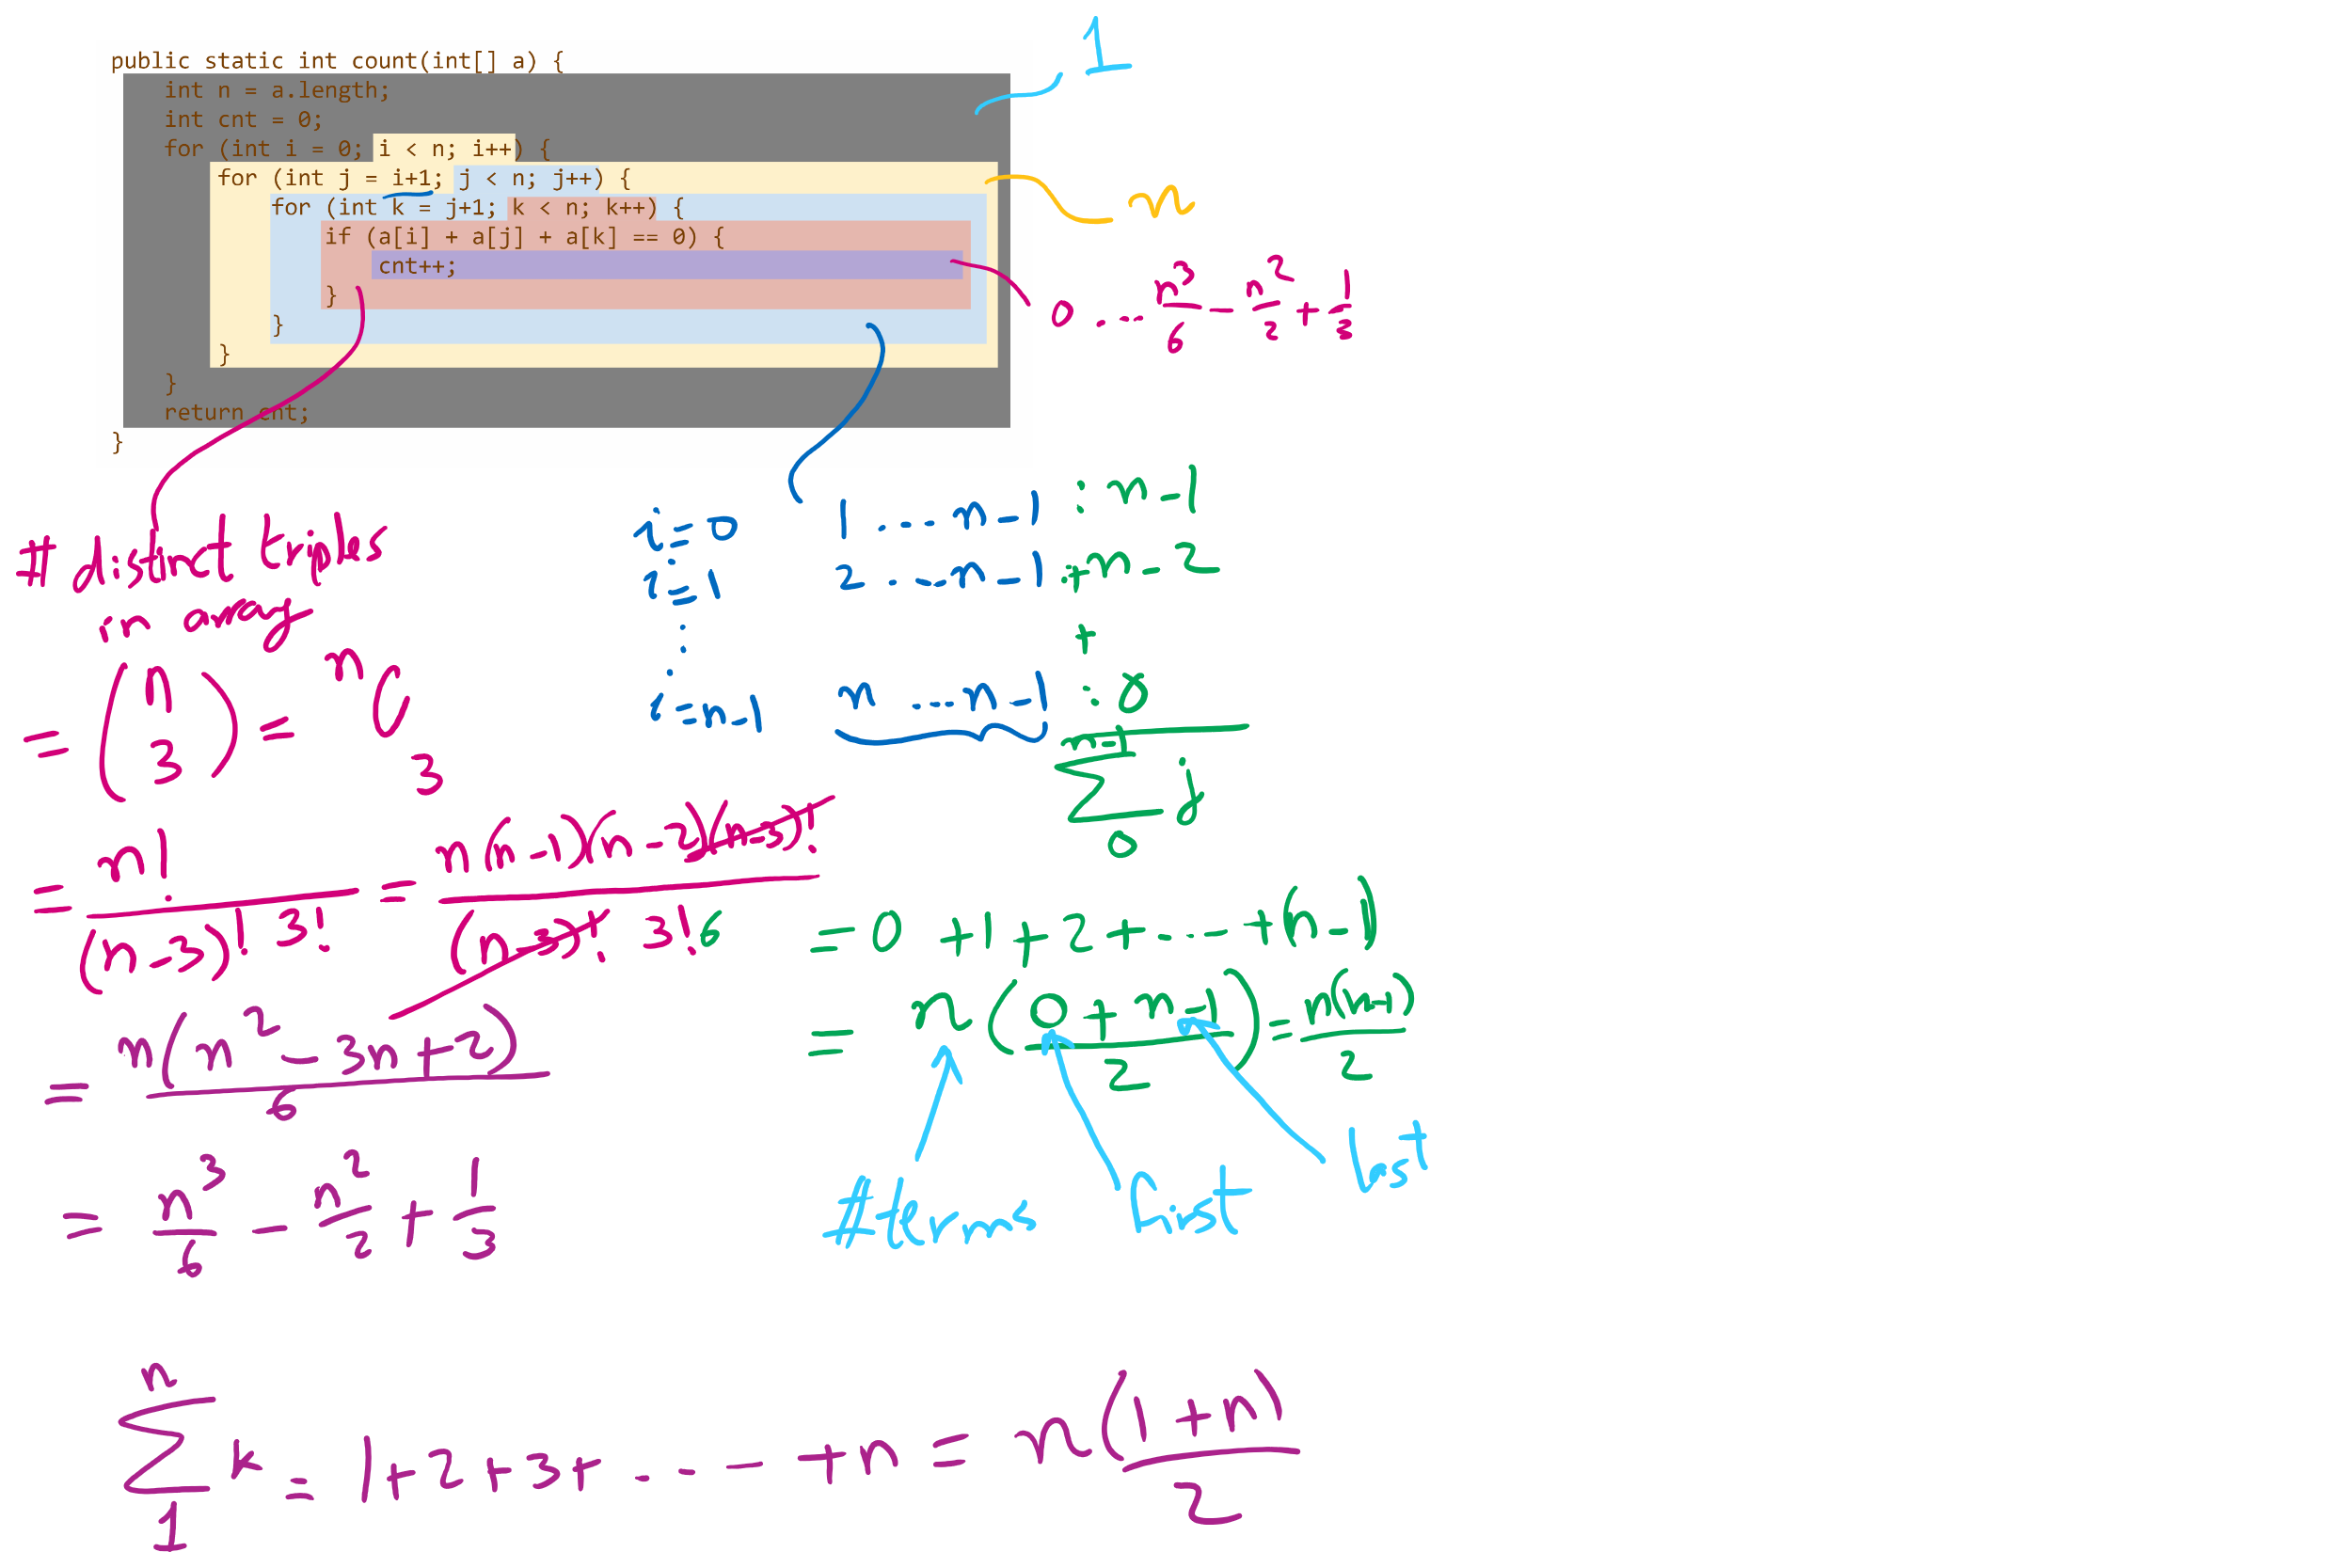 public static int count(int[] a) {
int n = a.length;
int cnt = 0;
for (int i = 0; i < n; i++) {
for (int j = i+1; j < n; j++) {
for (int k = j+1; k < n; k++) {
if (a[i] + a[j] + a[k] == 0) {
cnt++;
}
}
}
}
return cnt;
}
1
n
0 ... n^3/6 - n^2/2 + 1/3
# distinct triples
in array
= (n 3) = nC3
= n!/((n-3)! 3!) = n(n-1)(n-2)(n-3)!/((n-3)! 3!) 6
= n(n^2 - 3n + 2)/6
= n^3/6 - n^2/2 + 1/3
i=0 1 .... n-1 : n-1
i=1 2 .... n-1 : +n-2
⋮ +
i=n-1 n ... n-1 : 0
n-1
∑ j
0
= 0 + 1 + 2 + ..... + (n-1)
= n((0 + n-1)/2) = n(n-1)/2
#terms first last
n
∑ k = 1 + 2 + 3 + ..... + n = n(1+n)/2
1